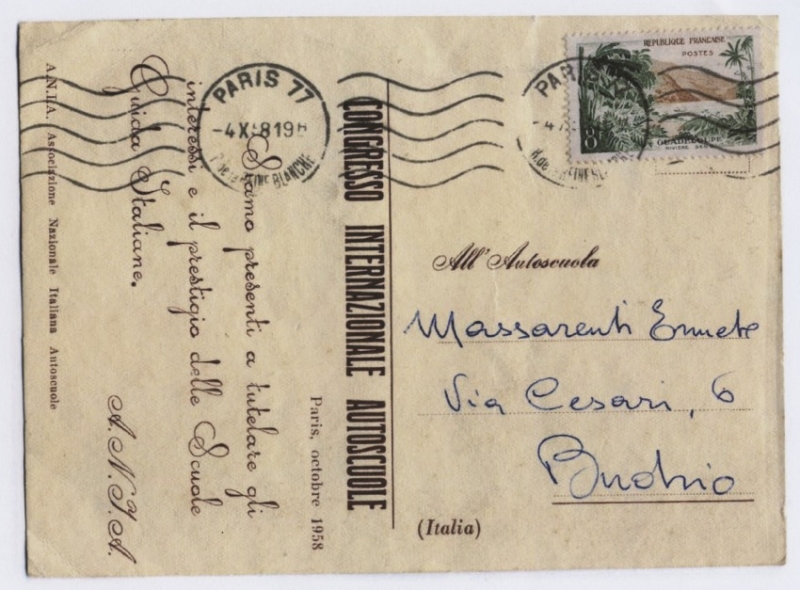 CONGRESSO INTERNAZIONALE AUTOSCUOLE
Paris, octobre 1958
Siamo presenti a tutelare gli
interessi e il prestigio delle Scuole
Guida Italiane.
A.N.I.A.
A.N.I.A. Associazione Nazionale Italiana Autoscuole
PARIS 77
-4 X 58 19
BLANCHE
PARIS
REPUBLIQUE FRANÇAISE
POSTES
8F
GUADELOUPE
All'Autoscuola
Massarenti Ermete
Via Cesari, 6
Budrio
(Italia)